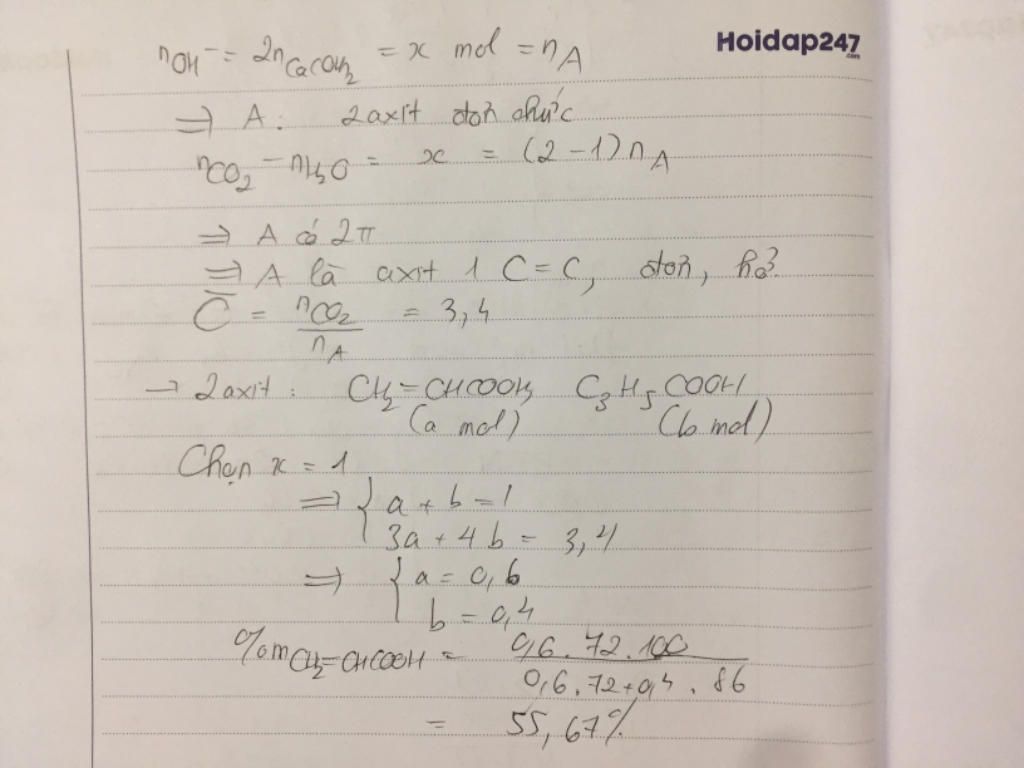 Hoidap247.com
nOH⁻ = 2nCa(OH)₂ = x mol = nA
⇒ A: 2 axit đơn chức
nCO₂ - nH₂O = x = (2-1) nA
⇒ A có 2π
⇒ A là axit 1 C=C, đơn, hở
C̅ = nCO₂ / nA = 3,4
→ 2 axit: CH₂=CHCOOH, C₃H₅COOH
(a mol) (b mol)
Chọn x = 1
⇒ { a + b = 1
3a + 4b = 3,4
⇒ { a = 0,6
b = 0,4
%mCH₂=CHCOOH = 0,6.72.100 / 0,6.72+0,4.86
= 55,67%